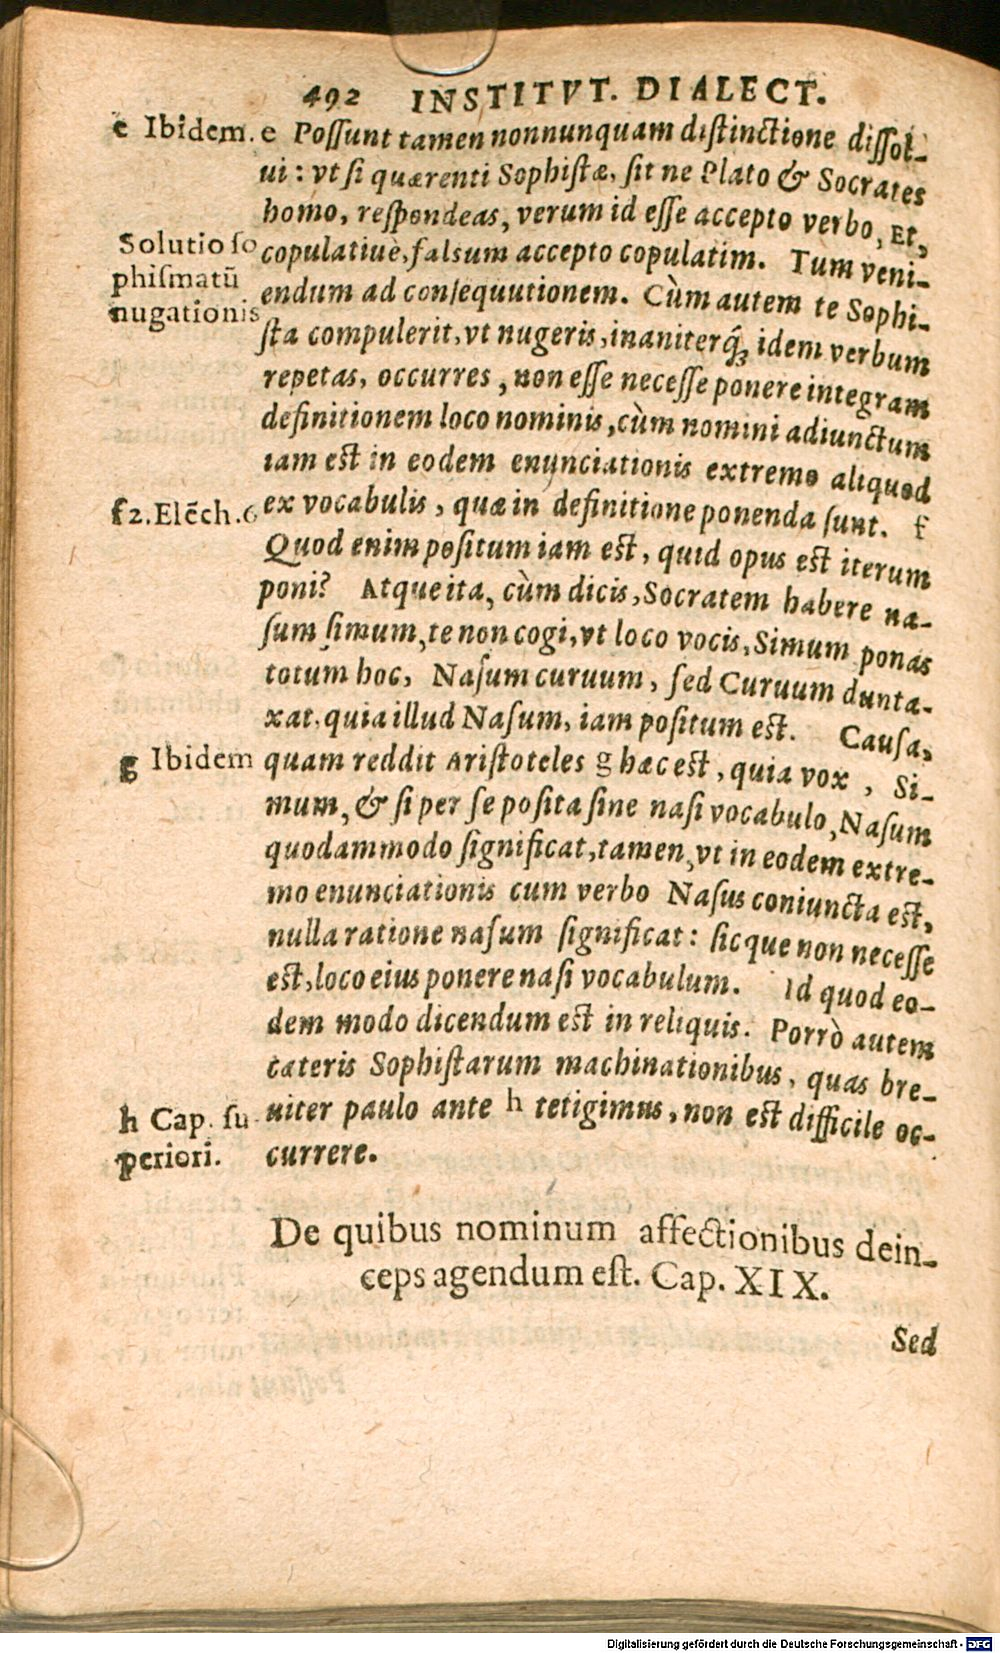 492 INSTITVT. DIALECT.
e Ibidem. e Poſſunt tamen nonnunquam diſtinctione diſſol-
ui: vt ſi quærenti Sophiſtæ, ſit ne Plato & Socrates
homo, reſpondeas, verum id eſſe accepto verbo, Et,
Solutio ſo
phiſmatū
nugationis
copulatiuè, falsum accepto copulatim. Tum veni-
endum ad conſequutionem. Cùm autem te Sophi-
ſta compulerit, vt nugeris, inaniterq́; idem verbum
repetas, occurres, non eſſe neceſſe ponere integram
definitionem loco nominis, cùm nomini adiunctum
iam eſt in eodem enunciationis extremo aliquod
f 2. Elēch. 6
ex vocabulis, quæ in definitione ponenda ſunt. f
Quod enim poſitum iam eſt, quid opus eſt iterum
poni? Atque ita, cùm dicis, Socratem habere na-
ſum ſimum, te non cogi, vt loco vocis, Simum ponas
totum hoc, Naſum curuum, ſed Curuum dunta-
xat, quia illud Naſum, iam poſitum eſt. Cauſa,
g Ibidem
quam reddit Ariſtoteles g hæc eſt, quia vox, Si-
mum, & ſi per ſe poſita ſine naſi vocabulo, Naſum
quodammodo ſignificat, tamen, vt in eodem extre-
mo enunciationis cum verbo Naſus coniuncta eſt,
nulla ratione naſum ſignificat: ſicque non neceſſe
eſt, loco eius ponere naſi vocabulum. Id quod eo-
dem modo dicendum eſt in reliquis. Porrò autem
cæteris Sophiſtarum machinationibus, quas bre-
h Cap. ſu-
periori.
uiter paulo ante h tetigimus, non eſt difficile oc-
currere.
De quibus nominum affectionibus dein-
ceps agendum eſt. Cap. XIX.
Sed
Digitalisierung gefördert durch die Deutsche Forschungsgemeinschaft - DFG